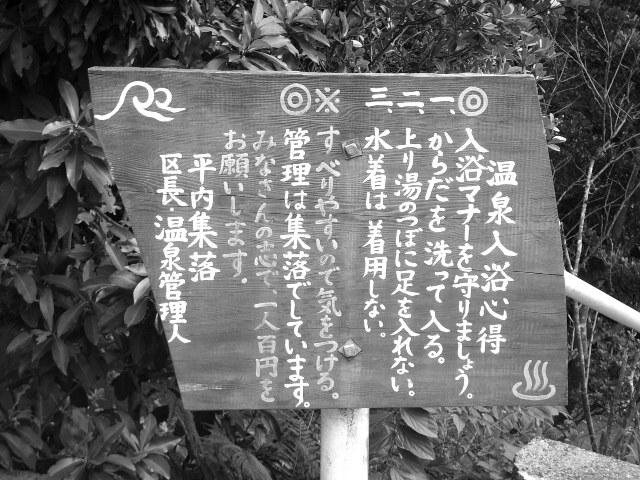 温泉入浴心得
◎入浴マナーを守りましょう。
一、からだを洗って入る。
二、上り湯のつぼに足を入れない。
三、水着は着用しない。
※すべりやすいので気をつける。
◎管理は集落でしています。
みなさんの志で、一人百円を
お願いします。
平内集落
区長 温泉管理人